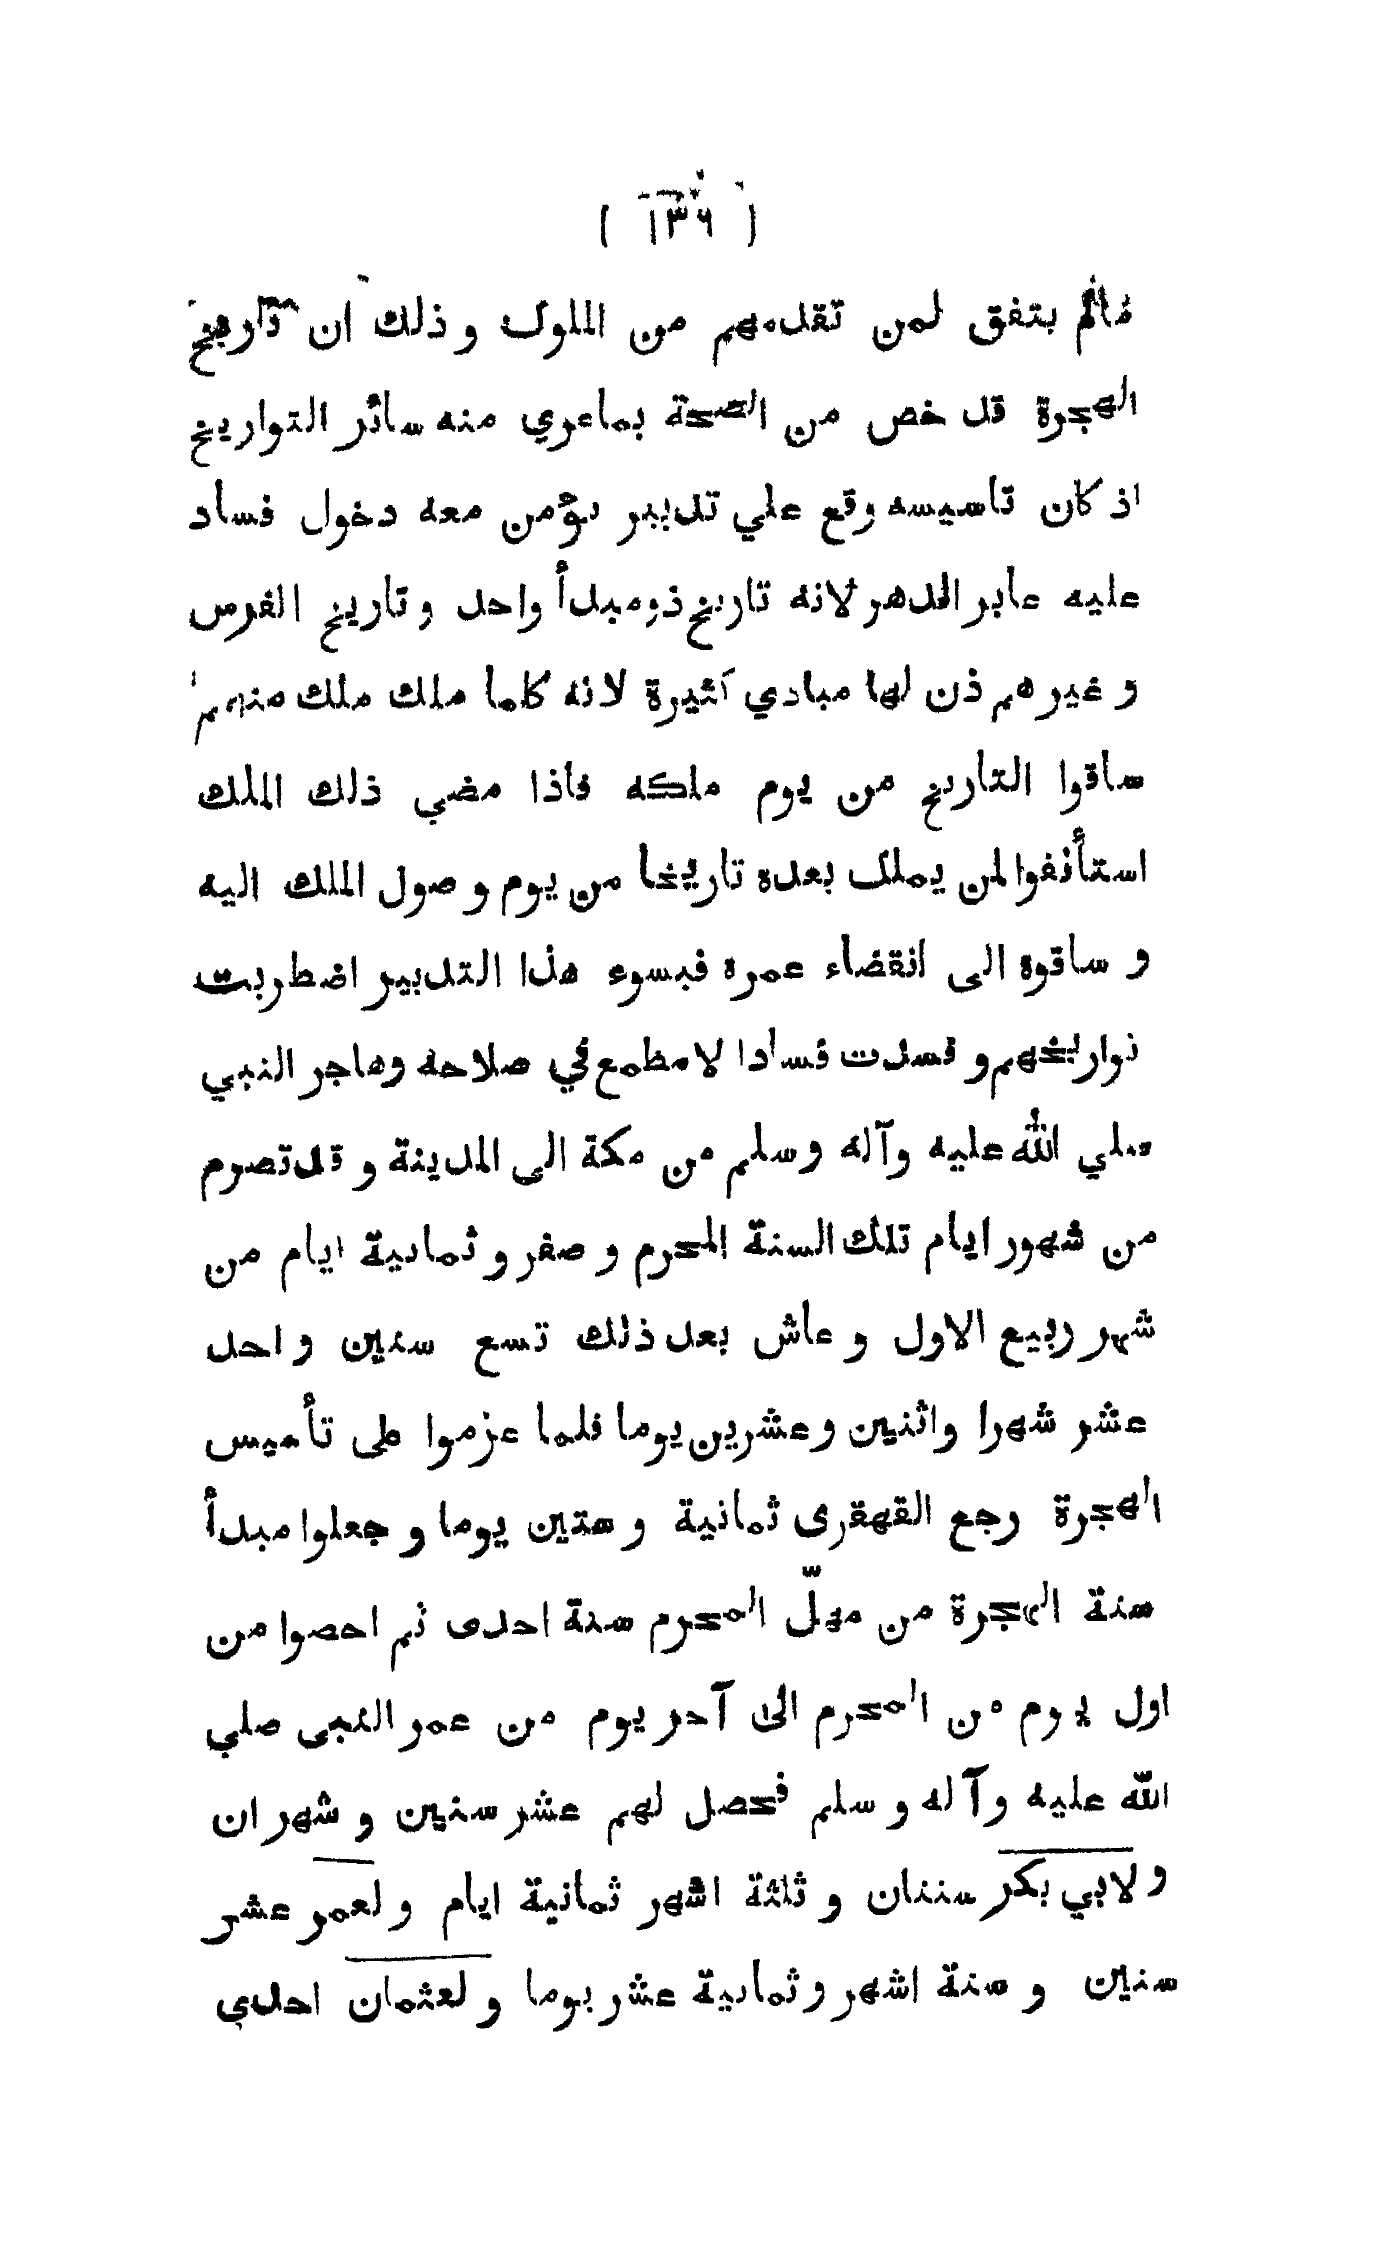 ( ١٣٦ )
مالم يتفق لمن تقدمهم من الملوك و ذلك ان تاريخ
الهجرة قد خص من الصحة بماعري منه سائر التواريخ
اذ كان تاسيسه وقع علي تدبير يؤمن معه دخول فساد
عليه عابر الدهر لانه تاريخ ذومبدأ واحد و تاريخ الفرس
و غير هم ذن لها مبادي كثيرة لانه كلما ملك ملك منهم
ساقوا التاريخ من يوم ملكه فاذا مضي ذلك الملك
استأنفوا لمن يملك بعده تاريخا من يوم و صول الملك اليه
و ساقوة الى انقضاء عمره فبسوء هذا التدبير اضطربت
تواريخهم و فسدت فسادا لا مطمع في صلاحه وهاجر النبي
صلي الله عليه وآله وسلم من مكة الى المدينة و قد تصرم
من شهور ايام تلك السنة المحرم و صفر و ثمانية ايام من
شهر ربيع الاول و عاش بعد ذلك تسع سنين و احد
عشر شهرا واثنين وعشرين يوما فلما عزموا على تأسيس
الهجرة رجع القهقرى ثمانية و ستين يوما و جعلوا مبدأ
سنة الهجرة من مهلّ المحرم سنة احدى ثم احصوا من
اول يوم من المحرم الى آخر يوم من عمر النبى صلي
الله عليه وآله و سلم فحصل لهم عشر سنين و شهر ان
و لابي بكر سنتان و ثلثة اشهر ثمانية ايام و لعمر عشر
سنين و ستة اشهر و ثمانية عشر يوما و لعثمان احدي